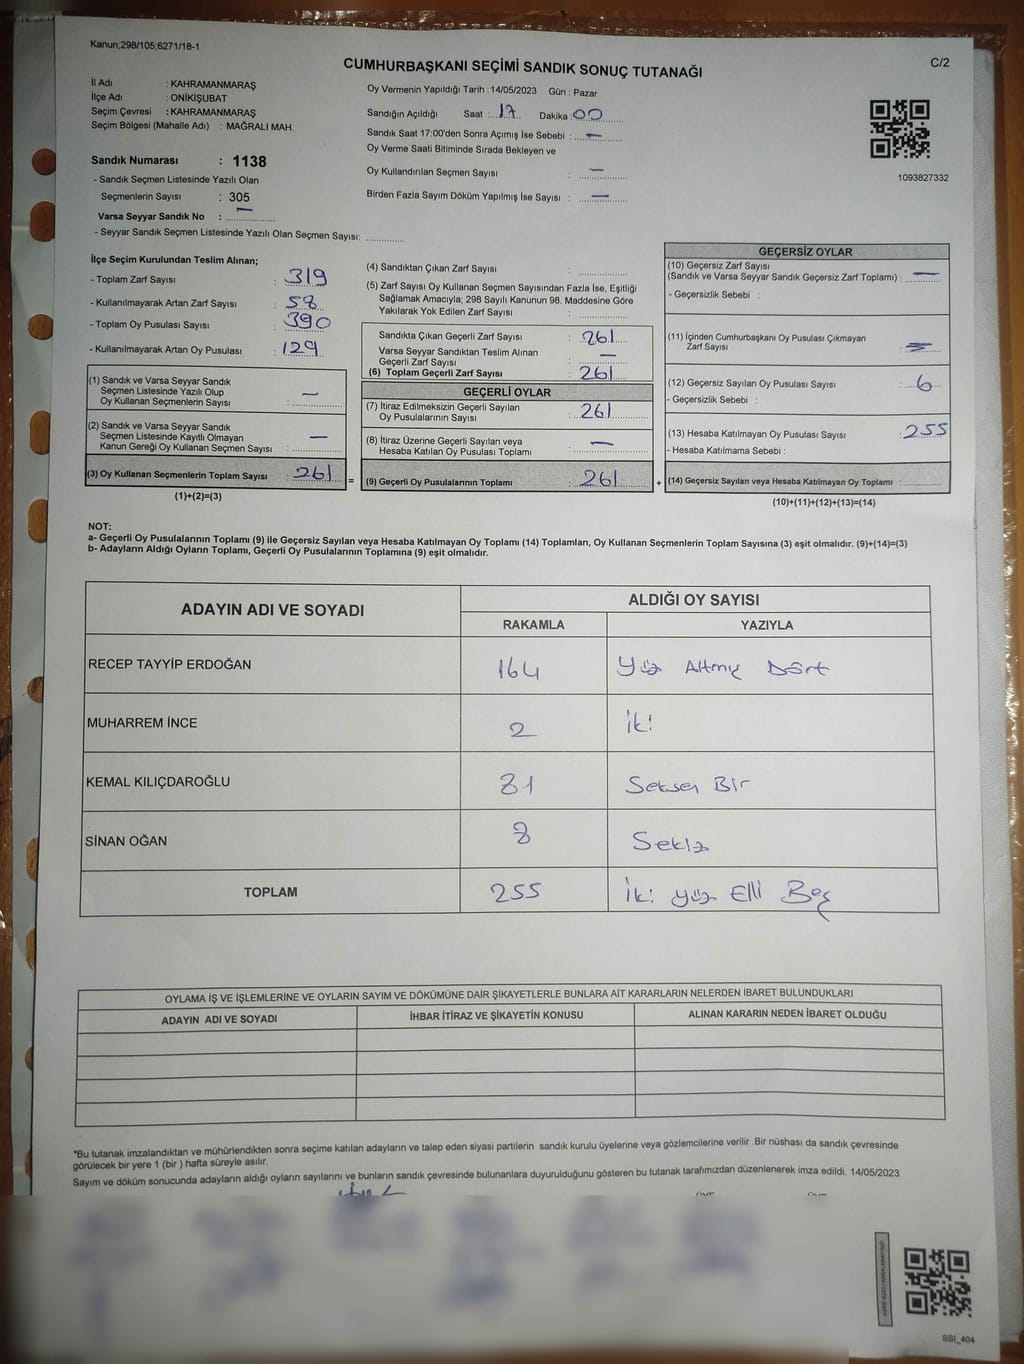 Kanun;298/105;6271/18-1
C/2
CUMHURBAŞKANI SEÇİMİ SANDIK SONUÇ TUTANAĞI
İl Adı : KAHRAMANMARAŞ
İlçe Adı : ONİKİŞUBAT
Seçim Çevresi : KAHRAMANMARAŞ
Seçim Bölgesi (Mahalle Adı) : MAĞRALI MAH.
Sandık Numarası : 1138
- Sandık Seçmen Listesinde Yazılı Olan
Seçmenlerin Sayısı : 305
Varsa Seyyar Sandık No : —
- Seyyar Sandık Seçmen Listesinde Yazılı Olan Seçmen Sayısı: ..............
Oy Vermenin Yapıldığı Tarih : 14/05/2023 Gün : Pazar
Sandığın Açıldığı Saat : 17 Dakika : 00
Sandık Saat 17:00'den Sonra Açımış İse Sebebi : —
Oy Verme Saati Bitiminde Sırada Bekleyen ve
Oy Kullandırılan Seçmen Sayısı : —
Birden Fazla Sayım Döküm Yapılmış İse Sayısı : —
1093827332
İlçe Seçim Kurulundan Teslim Alınan;
- Toplam Zarf Sayısı : 319
- Kullanılmayarak Artan Zarf Sayısı : 58
- Toplam Oy Pusulası Sayısı : 390
- Kullanılmayarak Artan Oy Pusulası : 129
(1) Sandık ve Varsa Seyyar Sandık
Seçmen Listesinde Yazılı Olup
Oy Kullanan Seçmenlerin Sayısı : —
(2) Sandık ve Varsa Seyyar Sandık
Seçmen Listesinde Kayıtlı Olmayan
Kanun Gereği Oy Kullanan Seçmen Sayısı : —
(3) Oy Kullanan Seçmenlerin Toplam Sayısı : 261 =
(1)+(2)=(3)
(4) Sandıktan Çıkan Zarf Sayısı : ..............
(5) Zarf Sayısı Oy Kullanan Seçmen Sayısından Fazla İse, Eşitliği
Sağlamak Amacıyla; 298 Sayılı Kanunun 98. Maddesine Göre
Yakılarak Yok Edilen Zarf Sayısı : ..............
Sandıkta Çıkan Geçerli Zarf Sayısı : 261
Varsa Seyyar Sandıktan Teslim Alınan
Geçerli Zarf Sayısı : —
(6) Toplam Geçerli Zarf Sayısı : 261
GEÇERLİ OYLAR
(7) İtiraz Edilmeksizin Geçerli Sayılan
Oy Pusulalarının Sayısı : 261
(8) İtiraz Üzerine Geçerli Sayılan veya
Hesaba Katılan Oy Pusulaları Toplamı : —
(9) Geçerli Oy Pusulalarının Toplamı : 261 +
GEÇERSİZ OYLAR
(10) Geçersiz Zarf Sayısı
(Sandık ve Varsa Seyyar Sandık Geçersiz Zarf Toplamı) : —
- Geçersizlik Sebebi :
(11) İçinden Cumhurbaşkanı Oy Pusulası Çıkmayan
Zarf Sayısı : —
(12) Geçersiz Sayılan Oy Pusulası Sayısı : 6
- Geçersizlik Sebebi :
(13) Hesaba Katılmayan Oy Pusulası Sayısı : 255
- Hesaba Katılmama Sebebi :
(14) Geçersiz Sayılan veya Hesaba Katılmayan Oy Toplamı : ..............
(10)+(11)+(12)+(13)=(14)
NOT:
a- Geçerli Oy Pusulalarının Toplamı (9) ile Geçersiz Sayılan veya Hesaba Katılmayan Oy Toplamı (14) Toplamları, Oy Kullanan Seçmenlerin Toplam Sayısına (3) eşit olmalıdır. (9)+(14)=(3)
b- Adayların Aldığı Oyların Toplamı, Geçerli Oy Pusulalarının Toplamına (9) eşit olmalıdır.
ADAYIN ADI VE SOYADI ALDIĞI OY SAYISI
RAKAMLA YAZIYLA
RECEP TAYYİP ERDOĞAN 164 Yüz Altmış Dört
MUHARREM İNCE 2 İki
KEMAL KILIÇDAROĞLU 81 Seksen Bir
SİNAN OĞAN 8 Sekiz
TOPLAM 255 İki yüz Elli Beş
OYLAMA İŞ VE İŞLEMLERİNE VE OYLARIN SAYIM VE DÖKÜMÜNE DAİR ŞİKAYETLERLE BUNLARA AİT KARARLARIN NELERDEN İBARET BULUNDUKLARI
ADAYIN ADI VE SOYADI İHBAR İTİRAZ VE ŞİKAYETİN KONUSU ALINAN KARARIN NEDEN İBARET OLDUĞU
*Bu tutanak imzalandıktan ve mühürlendikten sonra seçime katılan adayların ve talep eden siyasi partilerin sandık kurulu üyelerine veya gözlemcilerine verilir .Bir nüshası da sandık çevresinde
görülecek bir yere 1 (bir ) hafta süreyle asılır.
Sayım ve döküm sonucunda adayların aldığı oyların sayılarını ve bunların sandık çevresinde bulunanlara duyurulduğunu gösteren bu tutanak tarafımızdan düzenlenerek imza edildi. 14/05/2023
SSI_404